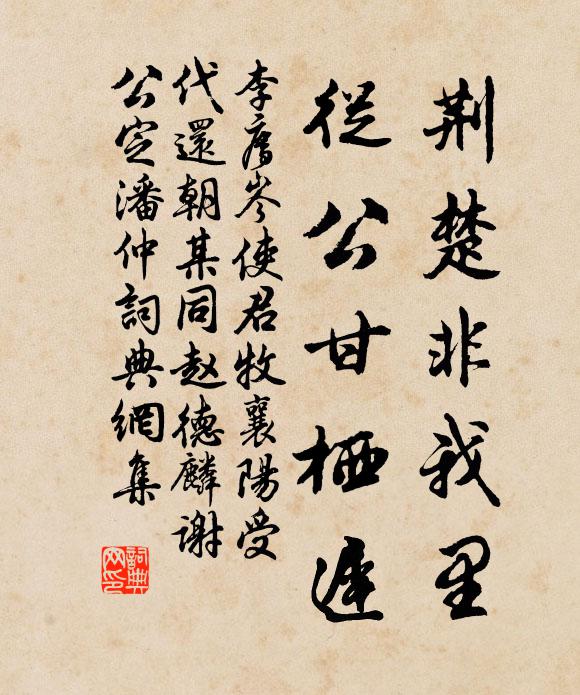 荆楚非我里
從公甘栖遲
李廌岑使君牧襄陽受
代還朝某同赵德麟謝
公定潘仲詞典網集
詞典
网印